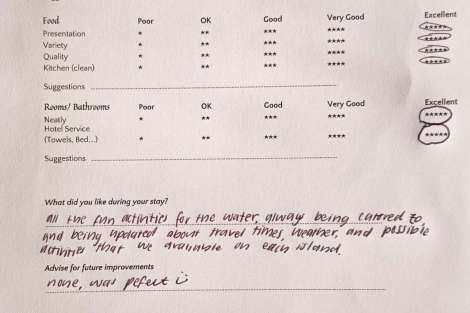 Food Poor OK Good Very Good Excellent
Presentation * ** *** **** *****
Variety * ** *** **** *****
Quality * ** *** **** *****
Kitchen (clean) * ** *** **** *****
Suggestions
Rooms/ Bathrooms Poor OK Good Very Good Excellent
Neatly * ** *** **** *****
Hotel Service
(Towels, Bed...) * ** *** **** *****
Suggestions
What did you like during your stay?
all the fun activities for the water, alway being catered to,
and being updated about travel times, weather, and possible
activities that we available on each island.
Advise for future improvements
none, was pefect